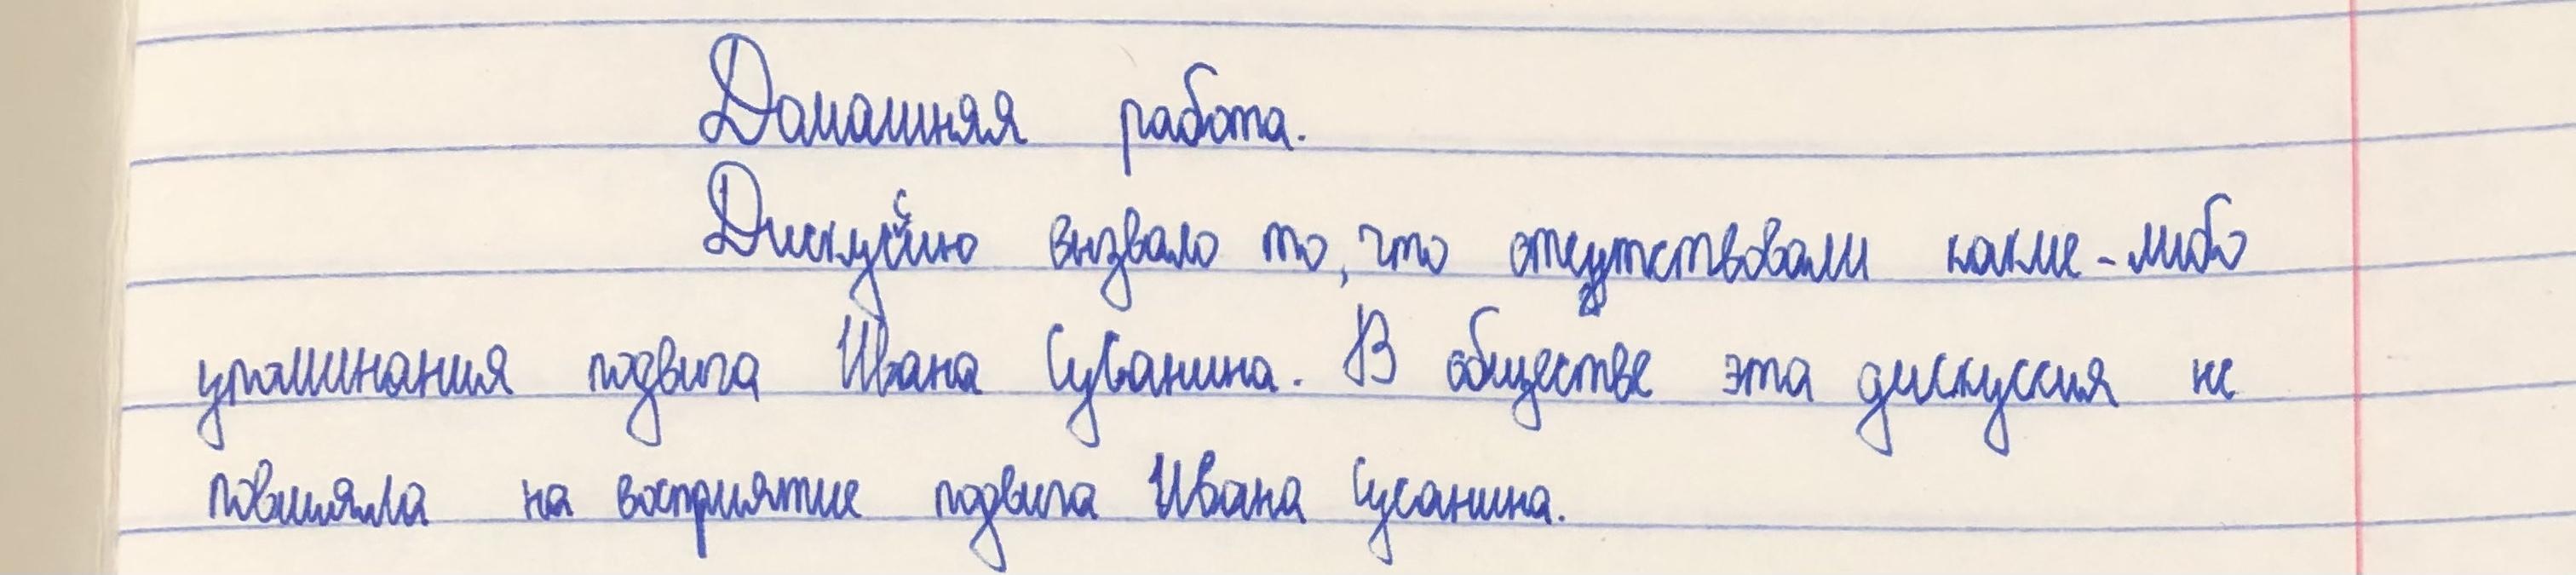 Домашняя работа.
Дискуссию вызвало то, что отсутствовали какие-либо
упоминания подвига Ивана Сусанина. В обществе эта дискуссия не
повлияла на восприятие подвига Ивана Сусанина.